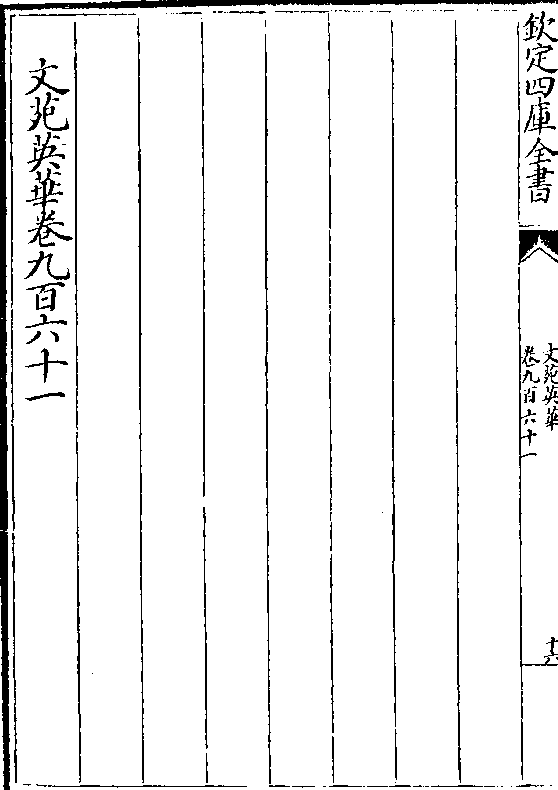 欽定四庫全書
文苑英華
卷九百六十一
十六
文苑英華卷九百六十一